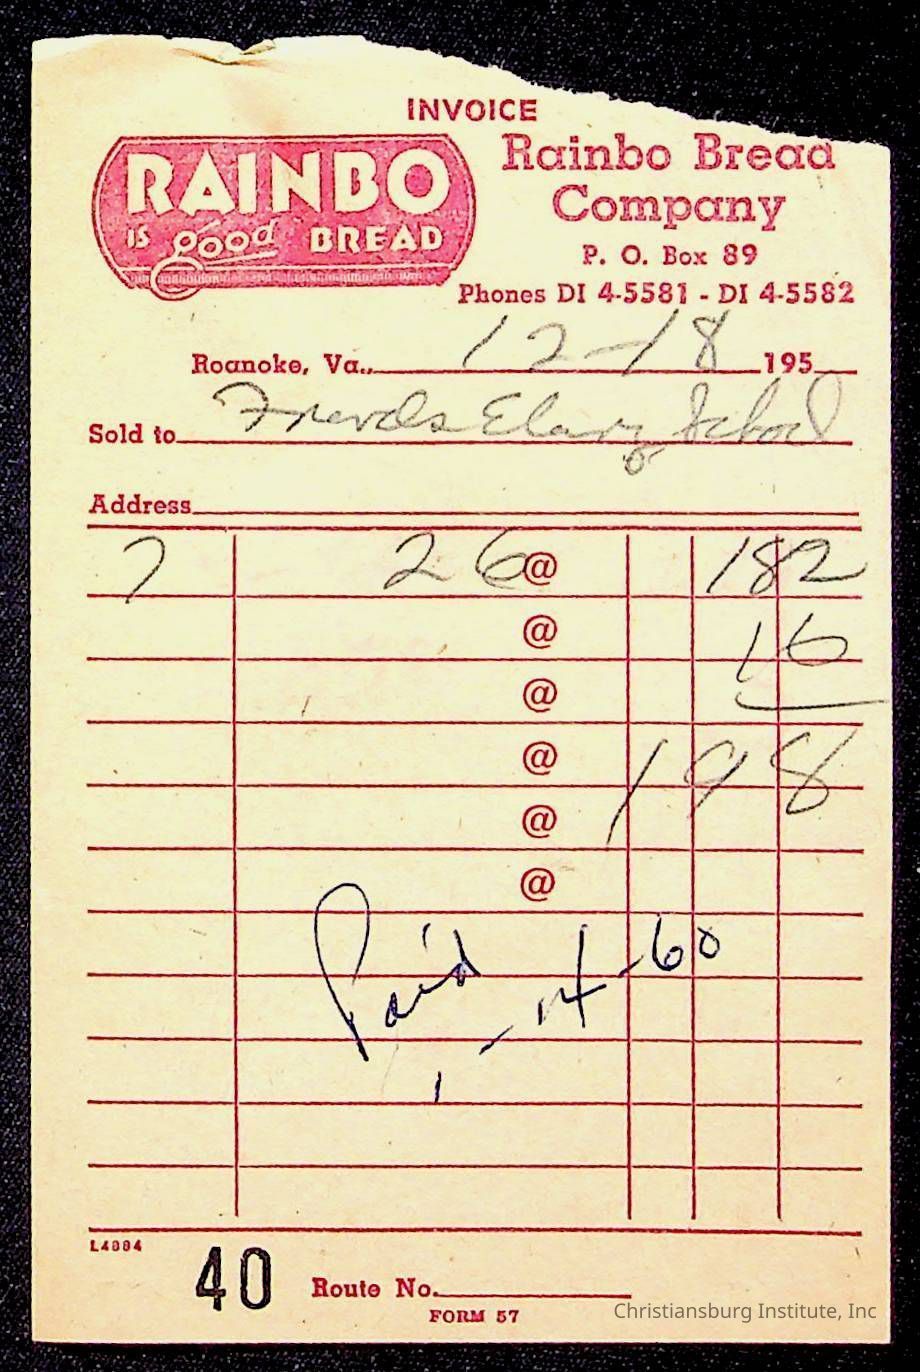 INVOICE
RAINBO
IS good BREAD
Rainbo Bread
Company
P. O. Box 89
Phones DI 4-5581 - DI 4-5582
Roanoke, Va., 12-18 195
Sold to Friends Elem School
Address
7 26 @ 182
@ 16
@
@ 198
@
@
Paid 1-14-60
L4994
40 Route No.
FORM 57
Christiansburg Institute, Inc